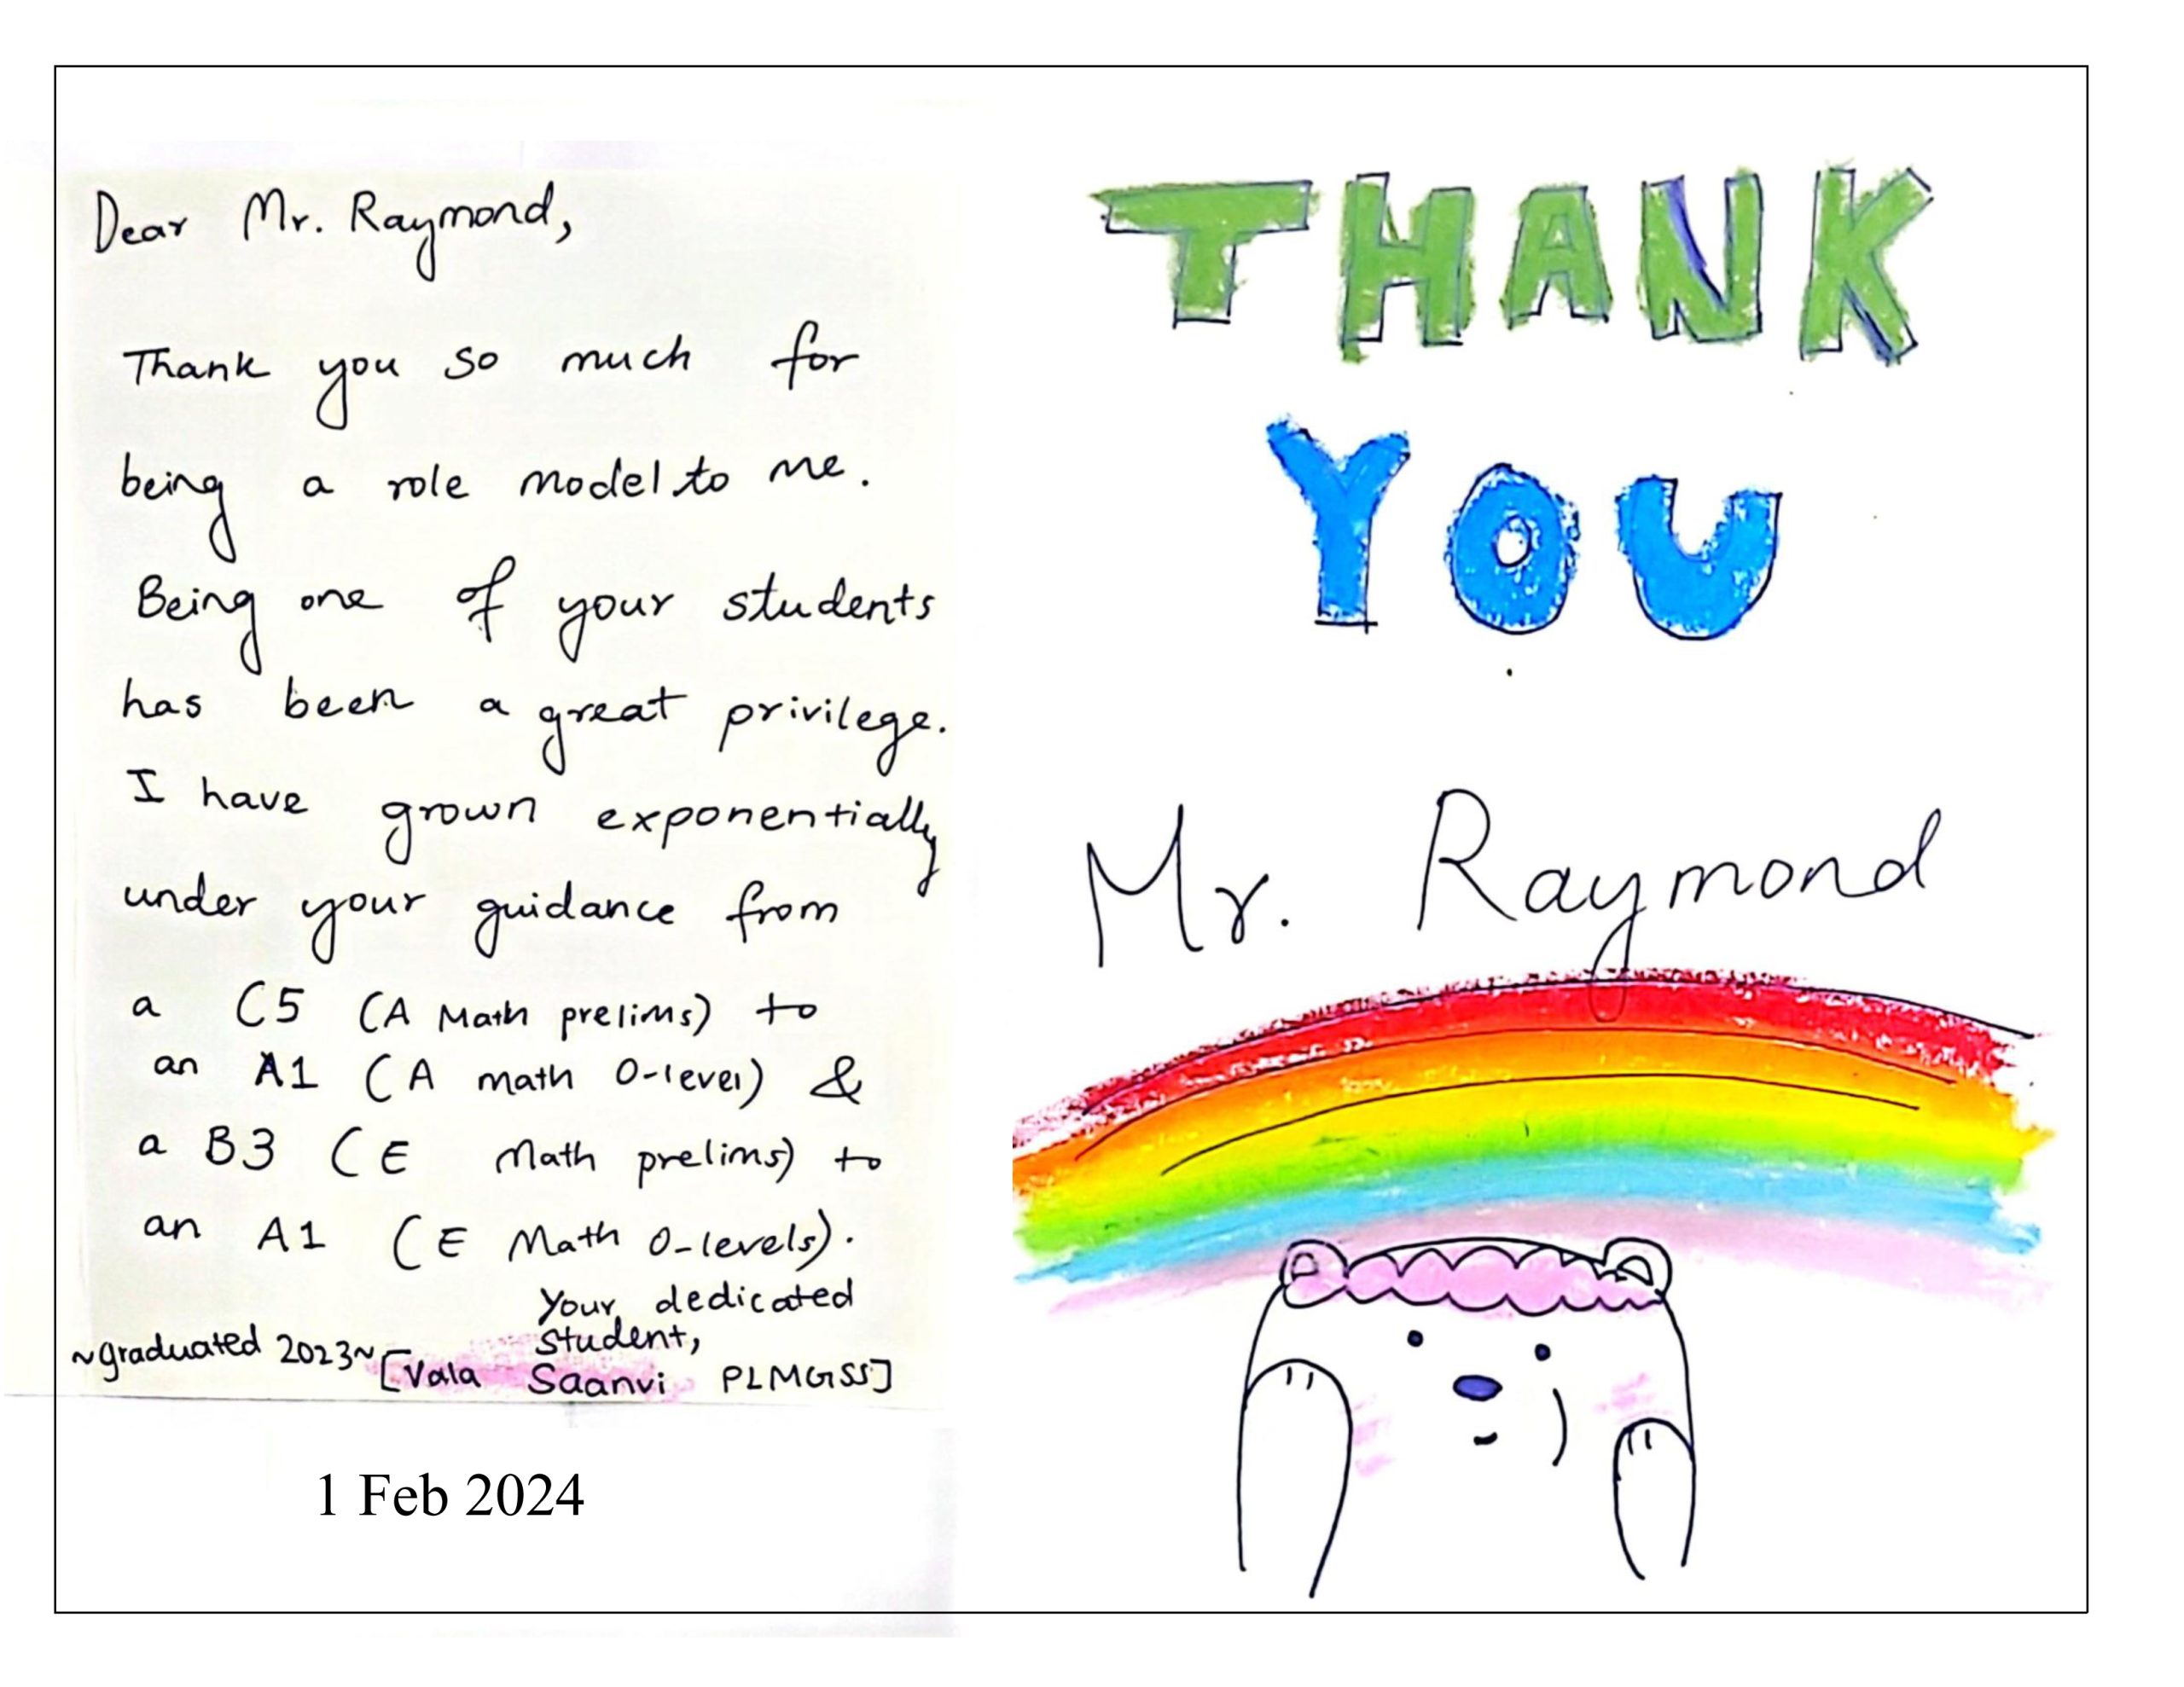 Dear Mr. Raymond,
Thank you so much for
being a role model to me.
Being one of your students
has been a great privilege.
I have grown exponentially
under your guidance from
a C5 (A Math prelims) to
an A1 (A math O-level) &
a B3 (E Math prelims) to
an A1 (E Math O-levels).
Your dedicated
student,
~graduated 2023~ [Vala Saanvi PLMGSS]
1 Feb 2024
THANK
YOU
Mr. Raymond